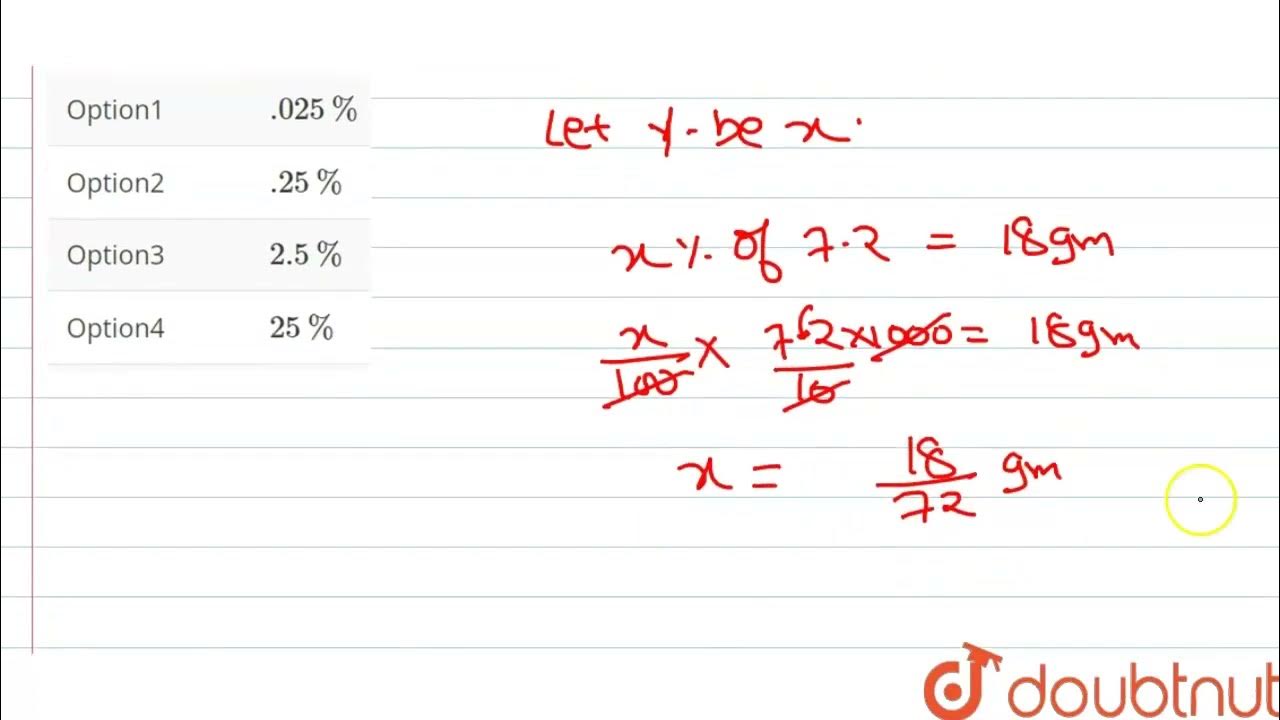 Option1 .025 %
Option2 .25 %
Option3 2.5 %
Option4 25 %
Let %. be x.
x %. of 7.2 = 18gm
x/100 × 7.2×1000/10 = 18gm
x = 18/72 gm
doubtnut